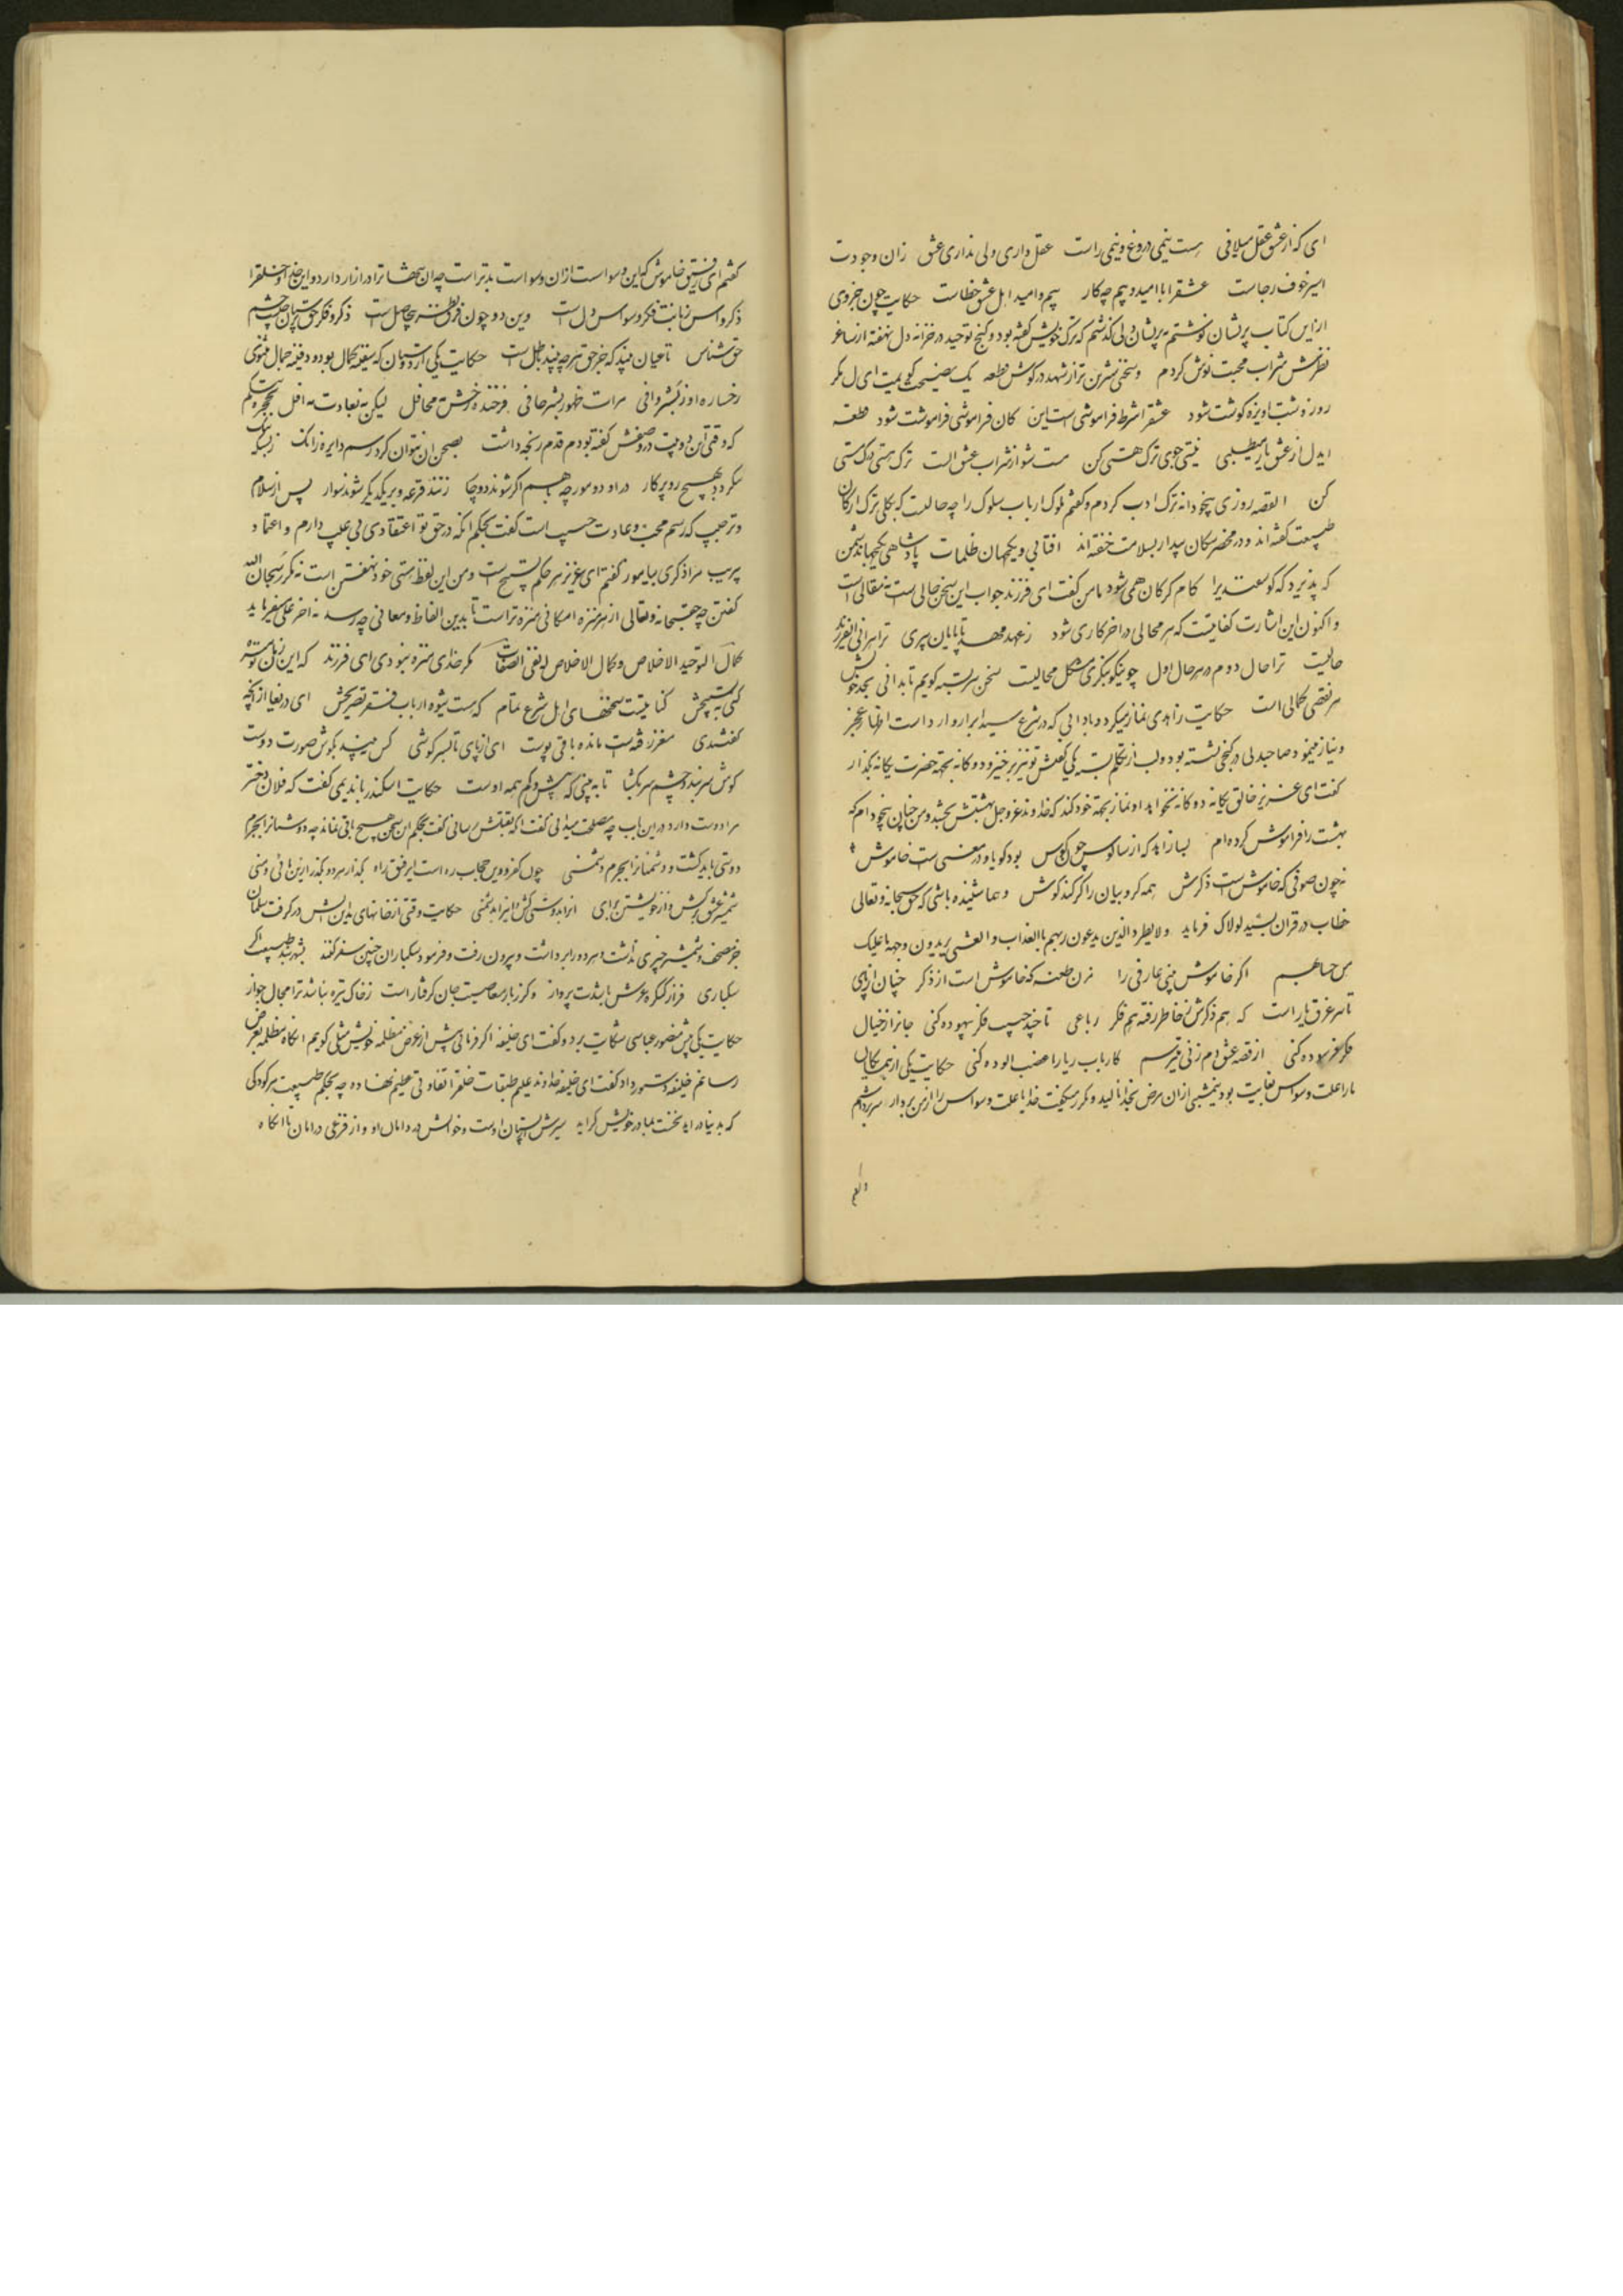 ای که از عشق عقل میلافی هست نیمی دروغ و نیمی راست عقل داری ولی نداری عشق زان وجودت
اسیر خوف رجاست عشقرا با امید و بیم چه کار بیم و امید اهل عشق خطاست حکایت چون جزوی
از این کتاب پریشان نوشتم بر پریشان دلی گذشتم که ترک خویش گفته بود و گنج توحید در خزانه دل نهفته از ساغر
نظرش شراب محبت نوش کردم و سخنی شیرین تر از شهد در گوش قطعه یک نصیحت گویمت ای دل مگر
روز و شب اویزه گوشت شود عشقرا شرط فراموشی است این کان فراموشی فراموشت شود قطعه
ایدل از عشق یار میطلبی نیستی جوی ترک هستی کن مست شو از شراب عشق الست ترک هستی و ترک مستی
کن القصه روزی بیخودانه ترک ادب کردم و گفتم ملوک ارباب سلوک را چه حالست که بکلی ترک ارکان
طبیعت گفته اند و در محضر سکان بیدار بسلامت خفته اند افتابی و یکجهان ظلمات پادشاهی یکجهان دشمن
که پذیرد که گوسفندیرا کام گرگان همی شود مامن گفت ای فرزند جواب این سخن حالی است نه مقالی است
و اکنون این اشارت کفایتست که هر محالی در اخر کاری شود ز عهد مهد تا پایان پیری ترا هرانی ایفرزند
حالیست ترا حال دوم در هر حال اول چو نیکو بنگری مشکل محالیست سخن سربسته گویم تا بدانی بحد خویش
هر نقصی کمالی است حکایت زاهدی نماز میکرد و بادابی که در شرع سید ابرار وارد است اظهار عجز
و نیاز مینمود صاحبدلی در کنجی نشسته بود و لب از تکلم بسته یکی گفتش تو نیز برخیز و دوکانه بجهة حضرت یگانه بگذار
گفت ای عزیز خالق یگانه دوکانه نخواهد او نماز بجهة خود کند که خداوند عز و جل بهشتش بخشد و من چنان بیخودام که
بهشت را فراموش کرده ام بسا زاهد که از سالوس چون کوس بود گویا و در معنی است خاموش
نه چون صوفی که خاموش است ذکرش همه کروبیان را کر کند گوش و هما شنیده باشی که حق سبحانه و تعالی
خطاب در قران بسید لولاک فرماید ولا یطرد الذین یدعون ربهم باالغداب والعشی یریدون وجهه ما علیک
من حسابهم اگر خاموش بینی عارفی را مزن طعنه که خاموش است از ذکر چنان از پای
تا سر غرق یار است که هم ذکرش ز خاطر رفته هم فکر رباعی تا چند حبیب فکر بیهوده کنی جانرا ز خیال
فکر فرسوده کنی از قصه عشق دم زنی میترسم کارباب ریا را غضب الوده کنی حکایت یکی از همسایگان
ما را علت وسواس بغایت بود نیمشبی از ان مرض بخدا نالید و مکرر میگفت خدایا علت وسواس را از من بردار سر برداشتم
و گفتم
گفتم ای رفیق خاموش که این وسواست از ان وسواست بدتر است چه ان همشا ترا در ازار دارد و این خلق خدا را
ذکر وسواس زبانست فکر وسواس دل است وین دو چون فرق نظر بیحاصل است ذکر و فکر حق پرستان حبیب چشم
حق شناس تا عیان بیند که جز حق هر چه بیند باطل است حکایت یکی از دوستان که سفینه کمال بود و دفینه جمال مثنوی
رخساره او ز بشر وافی مرات ظهور بشر حافی فرخنده رخش مه محافل لیکن نه بعادت مه افل بحجره تنگم
که وقتی این دو بیت در وصفش گفته بودم قدم رنجه داشت بصحن ان نتوان کرد رسم دایره زانک ز بس که تنگ
نگردد بهیچ رو پرگار در او دو مور چه با هم اگر شوند دوچار زنند قرعه و بر یکدیگر شوند سوار پس از سلام
و ترحیب که رسم محب و عادت حبیب است گفت بحکم انکه در حق تو اعتقادی بی عیب دارم و اعتماد
بی ریب مرا ذکری بیاموز گفتم ای عزیز هر حکم تسبیح است و من این لفظ هستی خود نهفتن است نه مکرر سبحان الله
گفتن چه حق سبحانه و تعالی از هر منزه امکانی منزه تر است تا بدین الفاظ و معانی چه رسد نه اخر علی میفرماید
کمال التوحید الاخلاص و کمال الاخلاص له نفی الصفات مگر خدای منزه نبودی ای فرزند که این زمان تو منزه
کنی به تسبیحش کنایتست سخنهای اهل شرع تمام که هست شیوه ارباب فقر تصریحش ای دریغا از آنچه
گفتشدی مغز رفته است مانده باقی پوست ای از پای تا بسر گوشی کس نبیند بگوش صورت دوست
گوش سر بند و چشم سر بگشا تا به بینی که بیش و کم همه اوست حکایت اسکندر با ندیمی گفت که فلان دختر
مرا دوست دارد در این باب چه مصلحت میدانی گفت انکه بقتلش رسانی گفت بحکم ان سخن هیچ باقی نماند چه دوستانرا بجرم
دوستی باید کشت و دشمنانرا بجرم دشمنی چون کفر و دین حجاب ره است ایرفیق راه بگذار هر دو بگذر از این مائی و منی
شمشیر عشق برکش و از خویشتن برای انرا بدوستی کش و اینرا بدشمنی حکایت وقتی از خانهای مداین اتش در گرفت سلمان
جز مصحف و شمشیر چیزی نداشت هر دو را برداشت و بیرون رفت و فرمود سبکباران چنین سفر کنند بشهر بند طبیعت اگر
سبکباری فراز کنگره عرش بایدت پرواز وگر ز بار معاصیت جان گرفتار است ز خاک تیره نباشد ترا مجال جواز
حکایت یکی پیش منصور عباسی شکایت برد و گفت ای خلیفه اگر فرمائی پیش از عرض مظلمه خویش مثلی گویم انگاه مظلمه بعرض
رسانم خلیفه دستور داد گفت ای خلیفه خداوند علیم طبقات خلقرا تفاوتی عظیم نهاده چه بحکم طبیعت هر کودکی
که بدنیا در اید نخست بمادر خویش گراید سیرش پستان اوست و خوابش در دامان او و از فزعی در امان تا انگاه